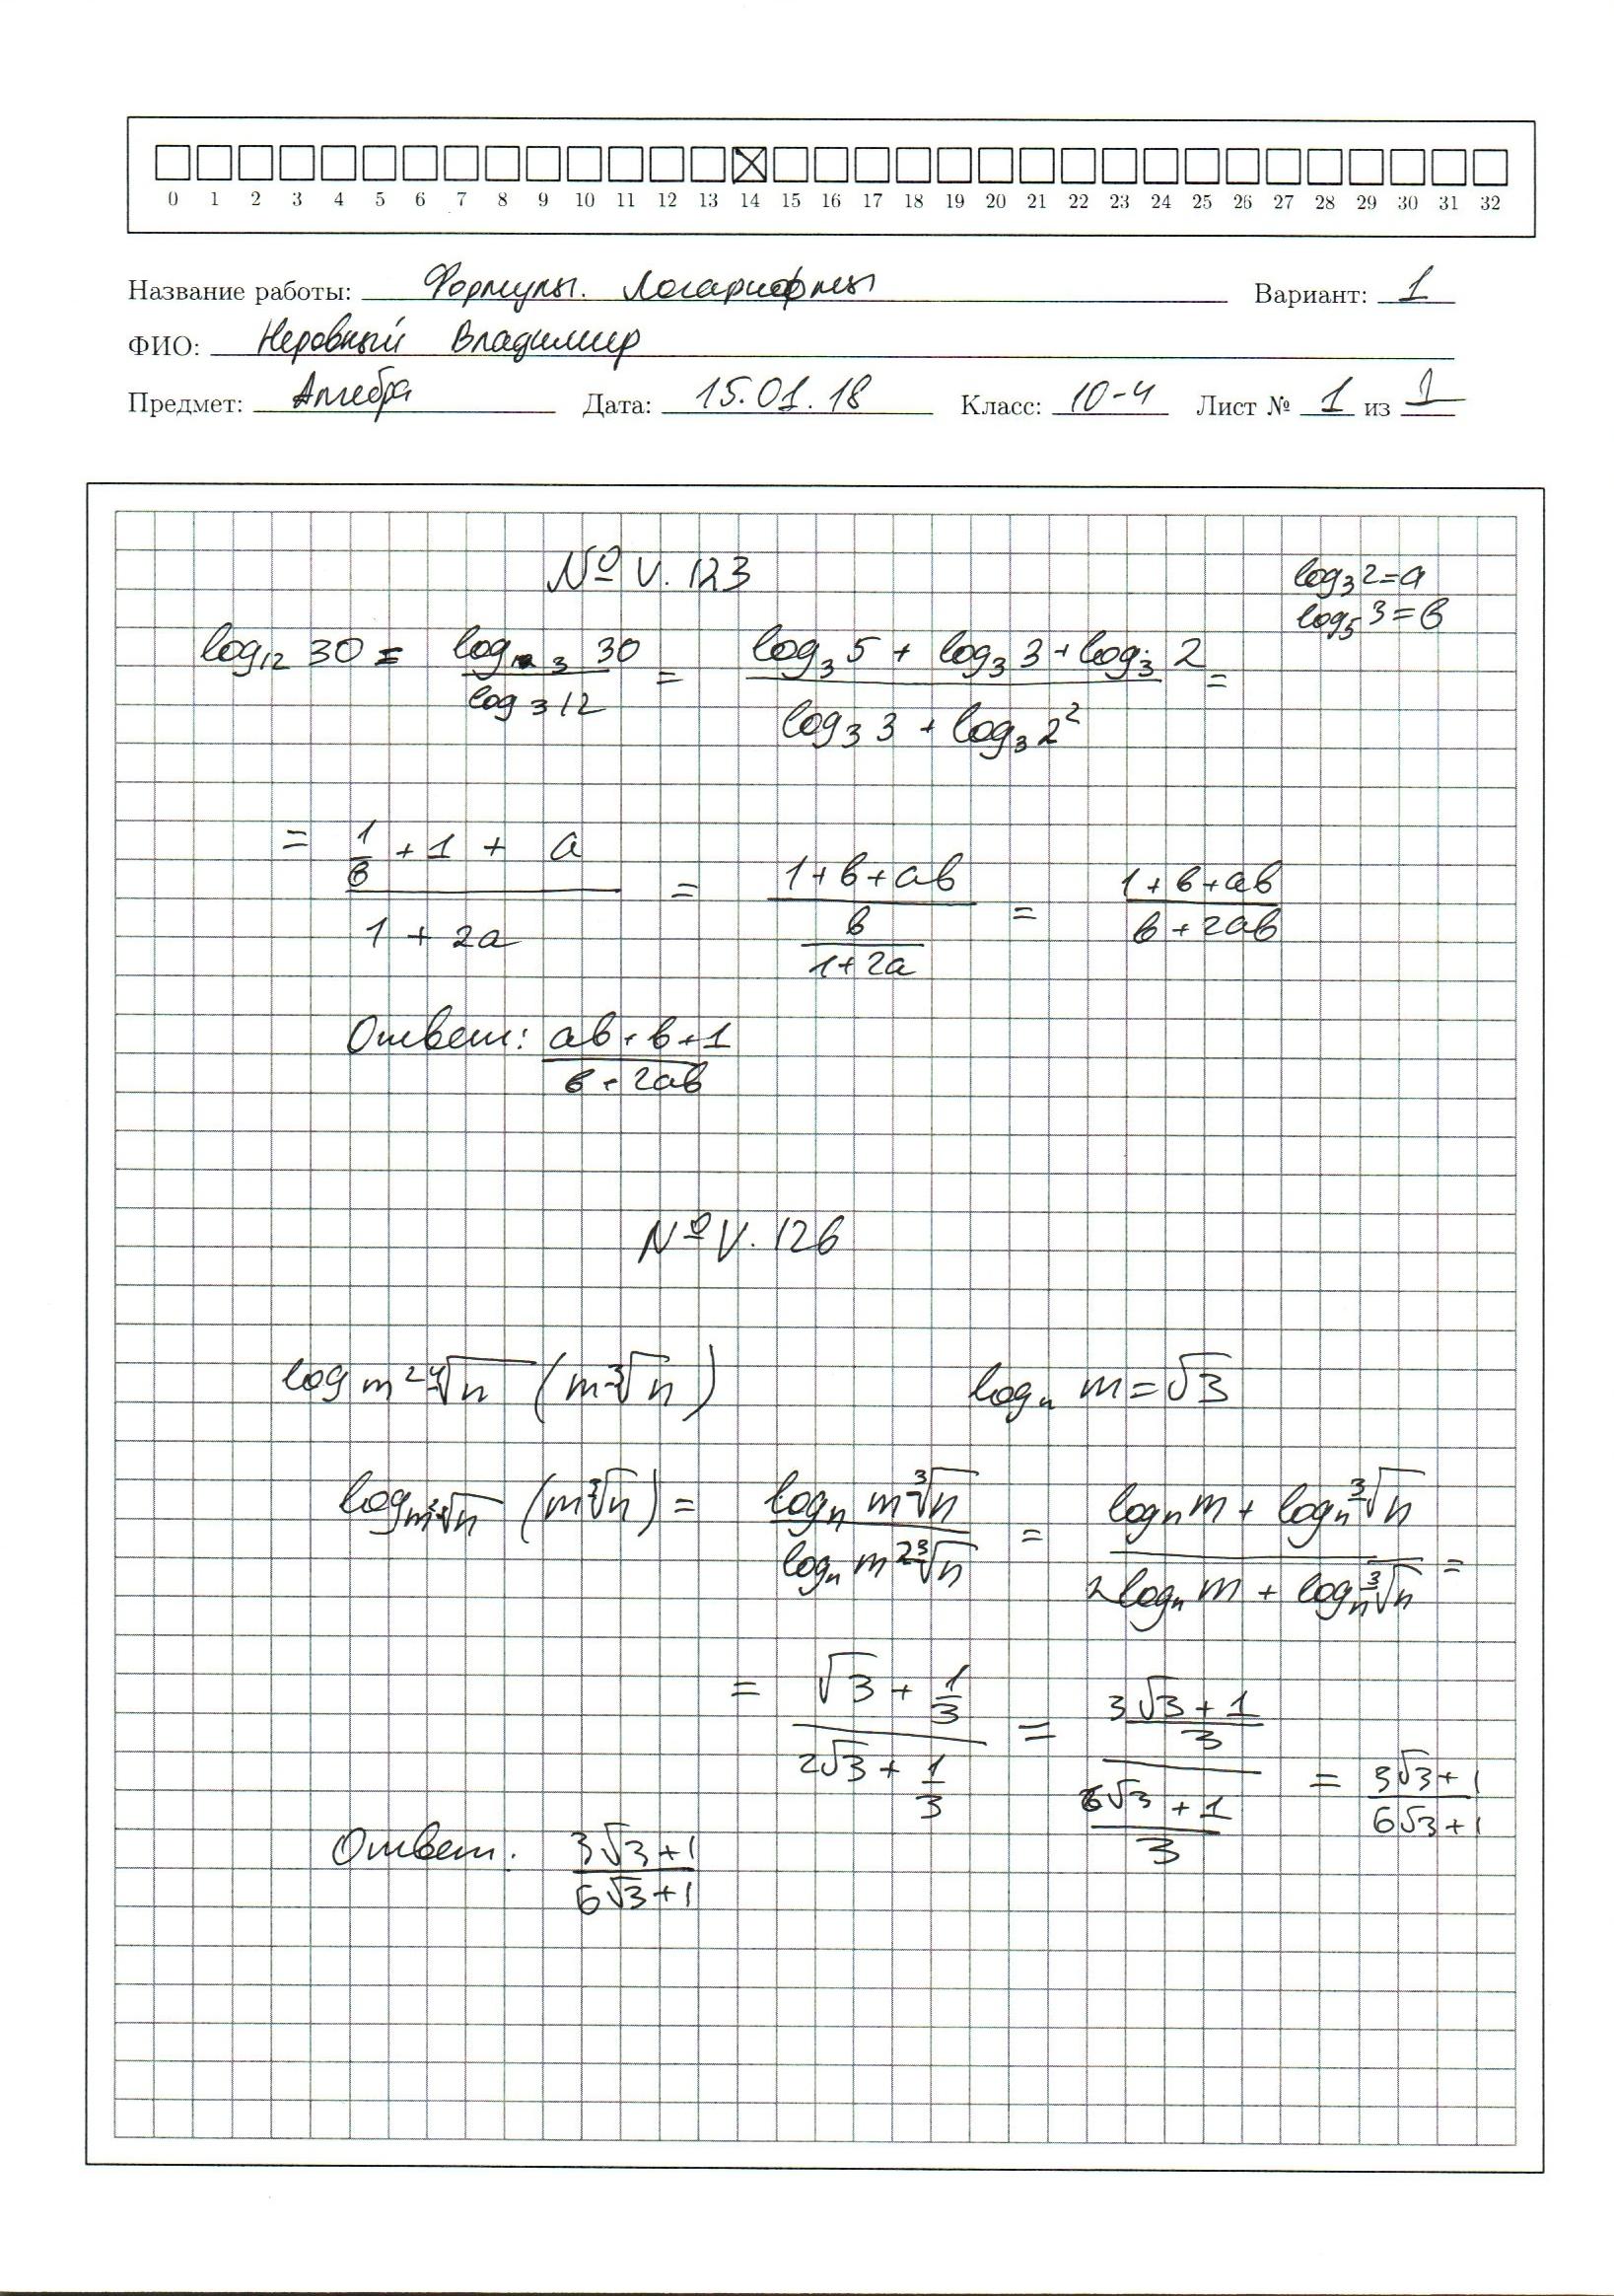 0 1 2 3 4 5 6 7 8 9 10 11 12 13 14 15 16 17 18 19 20 21 22 23 24 25 26 27 28 29 30 31 32
Название работы: Формулы. Логарифмы Вариант: 1
ФИО: Неровный Владимир
Предмет: Алгебра Дата: 15.01.18 Класс: 10-4 Лист № 1 из 1
№ V. 123
log₃ 2 = a
log₅ 3 = b
log₁₂ 30 = (log₃ 30)/(log₃ 12) = (log₃ 5 + log₃ 3 + log₃ 2)/(log₃ 3 + log₃ 2²) =
= (1/b + 1 + a)/(1 + 2a) = (1+b+ab)/(b/(1+2a)) = (1+b+ab)/(b+2ab)
Ответ: (ab+b+1)/(b+2ab)
№ V. 126
log m² ⁴√n (m ³√n) logₙ m = √3
log m³√n (m ³√n) = (logₙ m ³√n)/(logₙ m² ³√n) = (logₙ m + logₙ ³√n)/(2logₙ m + logₙ ³√n) =
= (√3 + 1/3)/(2√3 + 1/3) = ((3√3+1)/3)/((6√3+1)/3) = (3√3+1)/(6√3+1)
Ответ. (3√3+1)/(6√3+1)